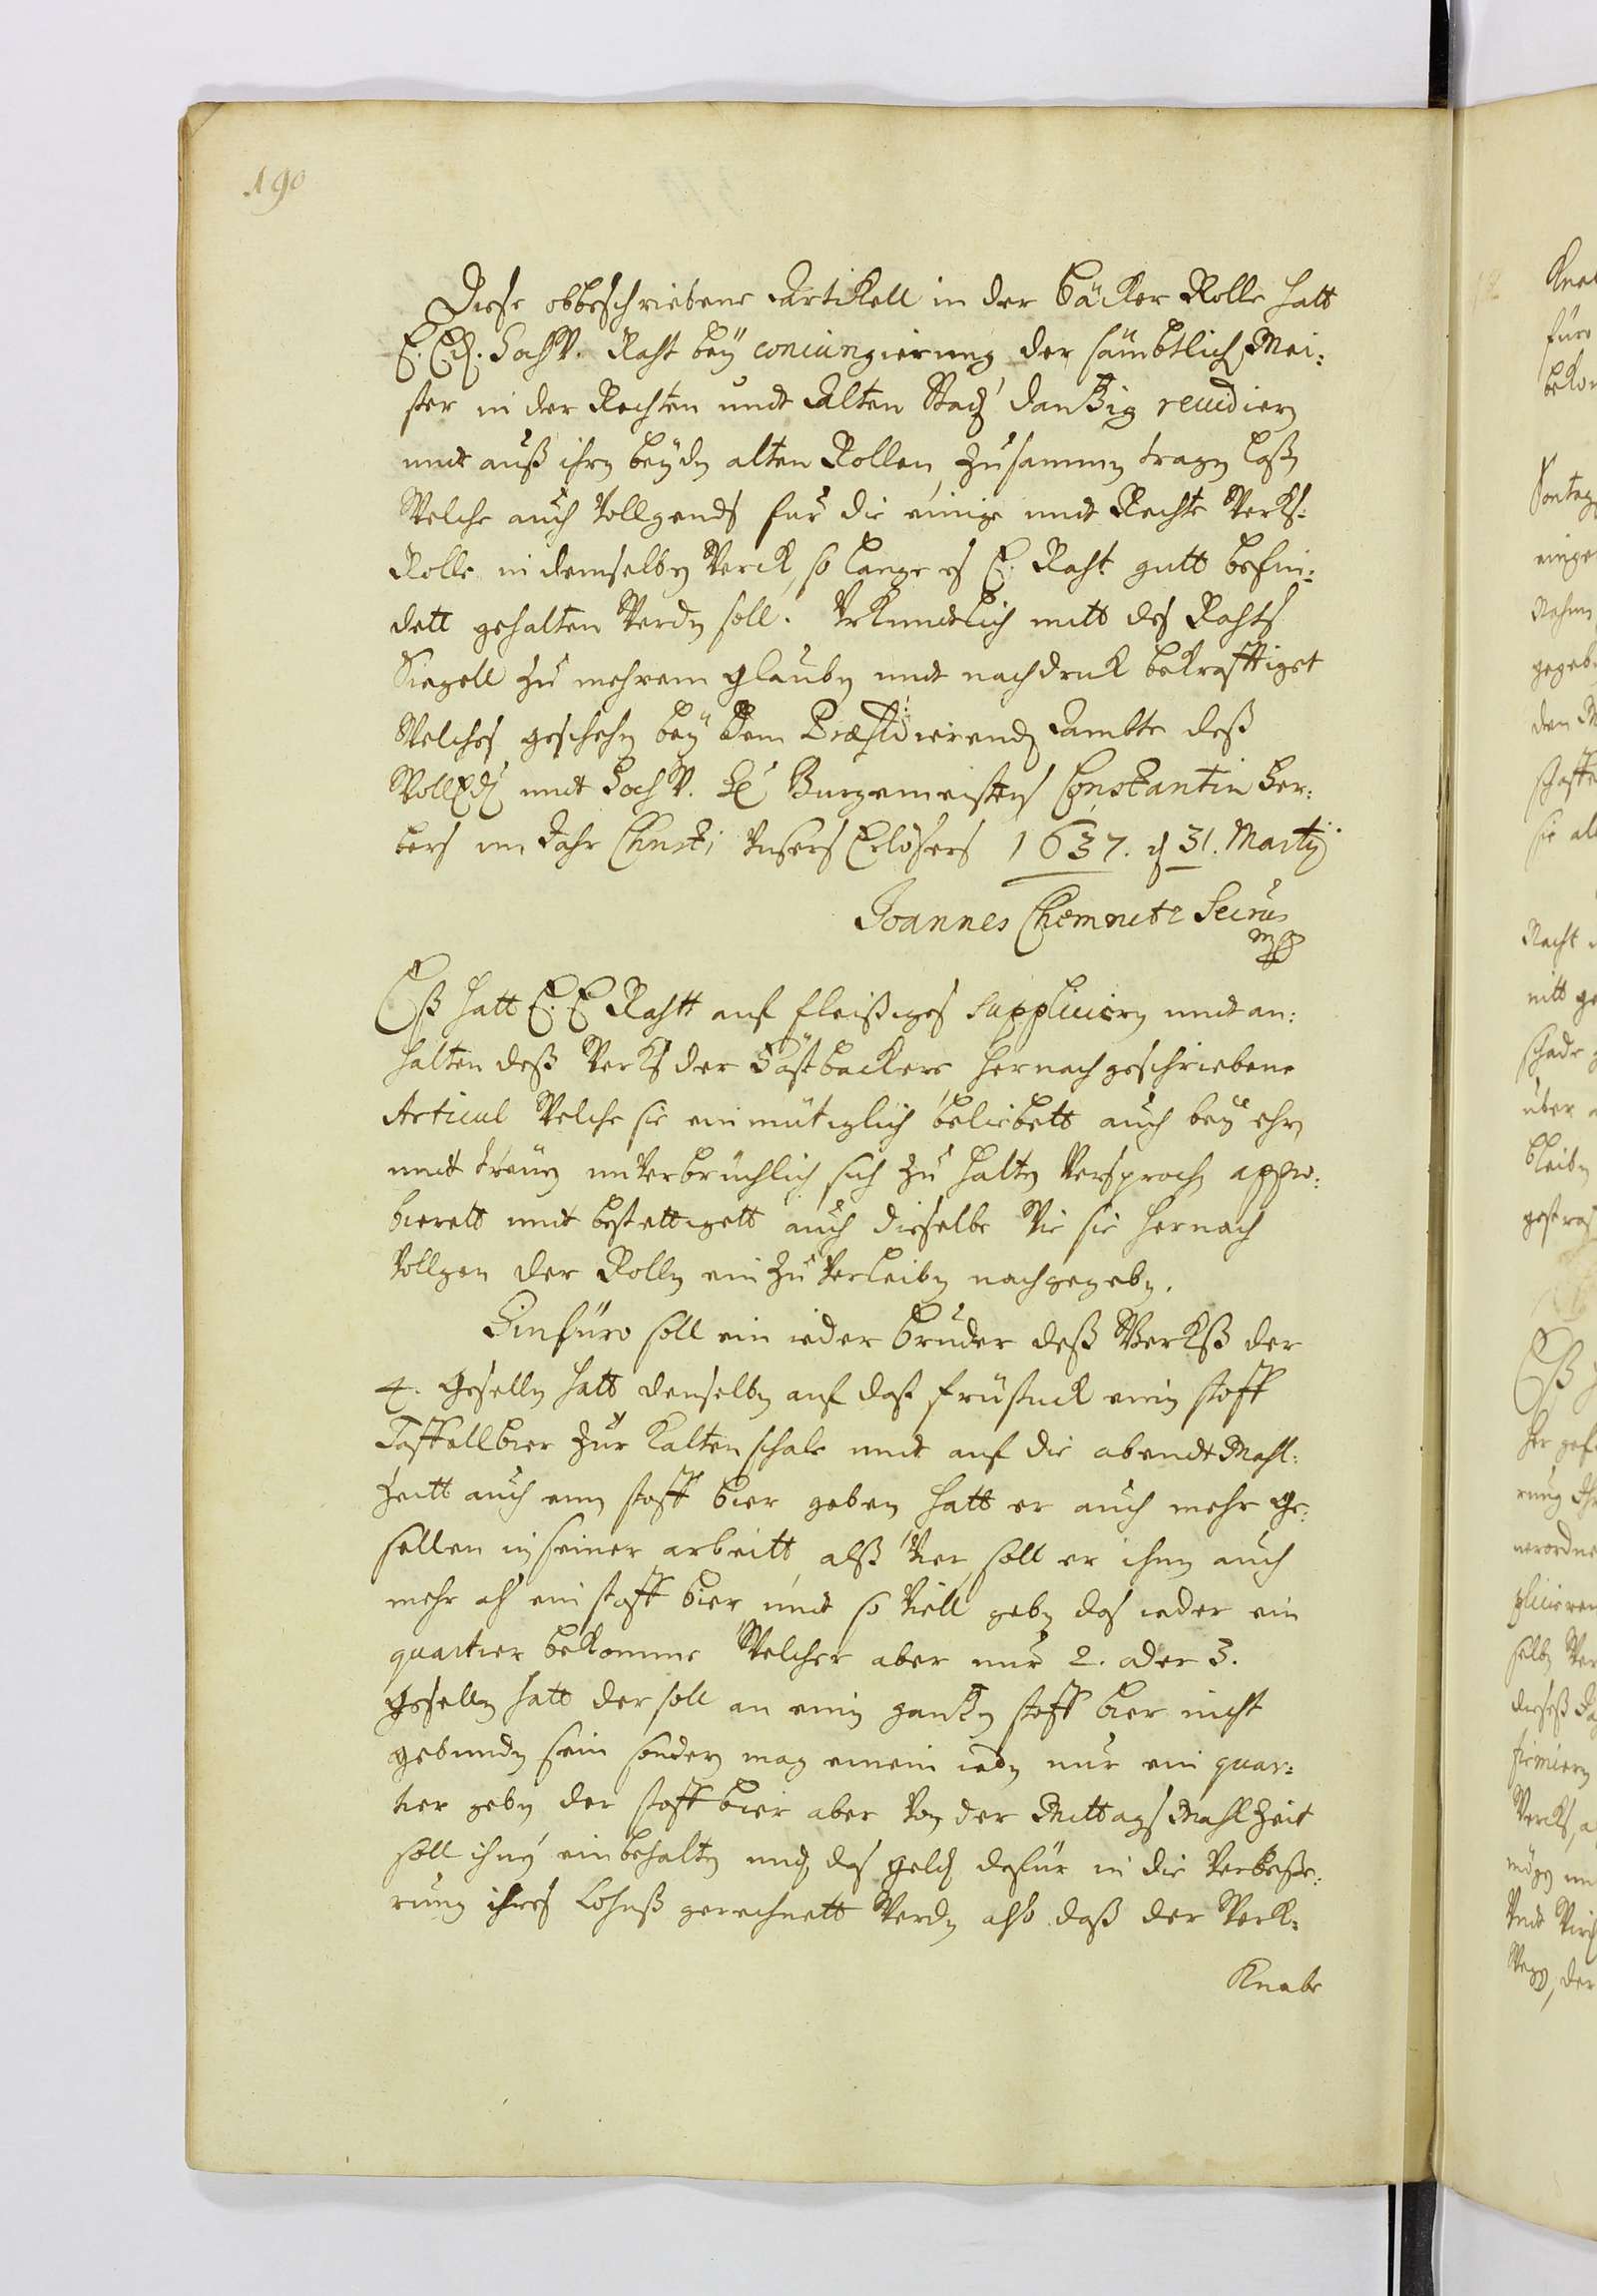 190
Diese obbeschriebene Artikell in der Bäcker Rolle hatt
E. Ed. HochW. Raht beÿ coniungierung der sämbtlich Mei:
ster in der Rechten undt Alten Stad Dantzig revidiern
undt auß ihrn beÿdn alten Rollen zusammen tragn laßn
Welche auch vollgends für die einige undt Rechte Werks:
Rolle in demselbn Werck, so lange es E. Raht gutt befin:
dett gehalten werdn soll. Vrkundtlich mitt des Rahts
Siegell zu mehrem glaubn undt nachdruk bekrafftiget
Welches geschehn beÿ dem Præsidierendn Ambte deß
WollEdl undt HochW. H. Burgemeisters Constantin Fer:
bers im Jahr Christi Vnsers Erlösers 1637. d 31. Martij
Joannes Chemnitz Secrus
mp
Eß hatt E. E Rahtt auf fleißiges Supplicirn undt an:
halten deß Werks der Fastbacker hernach geschriebene
Articul Welche sie einmütiglich beliebett auch beÿ ehrn
undt treüen unVerbrüchlich sich zu haltn Versprochn appro:
bierett undt bestettigett auch dieselbe Wie sie hernach
Vollgen der Rolln ein zu Verleibn nachgegebn.
Hinfüro soll ein ieder Bruder deß Werkß der
4. Geselln hatt denselbn auf daß früstuck einn stoff
Taffellbier zur Kaltenschale undt auf die abendt Mahl:
Zeitt auch einn stoff bier geben hatt er auch mehr Ge:
sellen in seiner arbeitt, alß Vier, soll er ihnn auch
mehr als ein stoff bier undt so Viell gebn das ieder ein
quartier bekomme Welcher aber nur 2. oder 3.
Geselln hatt der soll an einn gantzn stoff bier nicht
gebundn sein sondern mag einem iedn nur ein quar:
tier gebn der stoff bier aber Von der Mittags Mahlzeit
soll ihnn einbehaltn und das geld dafür in die Verbeße:
rung ihres Lohnß gerechnett Werdn also daß der Werk:
Knabe